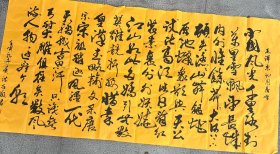 北国风光千里冰封
万里雪飘望长城
内外惟余莽莽大河上下
顿失滔滔山舞银蛇
原驰蜡象欲与天公
试比高须晴日看红
装素裹分外妖娆江
山如此多娇引无数
英雄竞折腰惜秦
皇汉武略输文采唐
宗宋祖稍逊风骚一代
天骄成吉思汗只识弯
弓射大雕俱往矣数风
流人物还看今朝